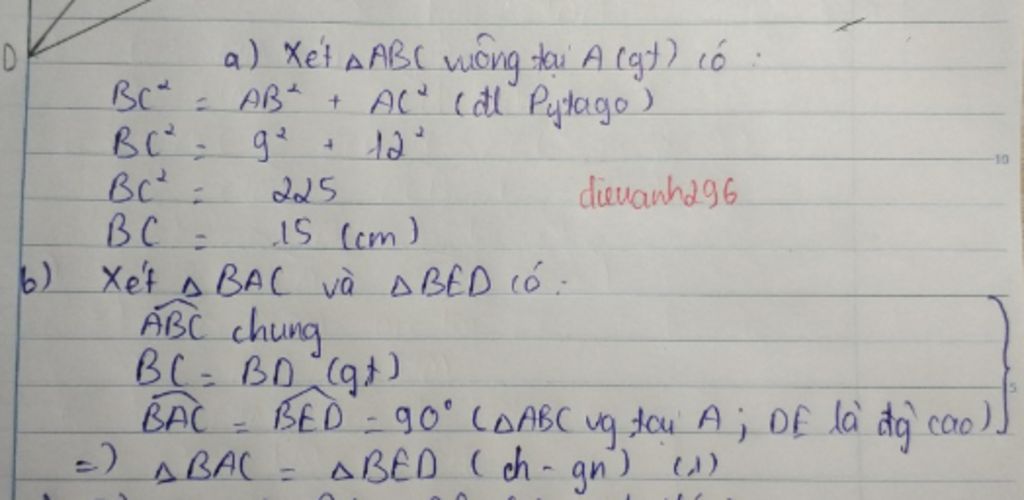 D
a) Xét △ABC vuông tại A (gt) có :
BC² = AB² + AC² (đl Pytago)
BC² = 9² + 12²
10
BC² = 225
dieuanh296
BC = 15 (cm)
b) Xét △BAC và △BED có :
\widehat{ABC} chung
BC = BD (gt)
5
\widehat{BAC} = \widehat{BED} = 90° (△ABC vg tại A ; DE là đg cao)
=) △BAC = △BED (ch - gn) (1)